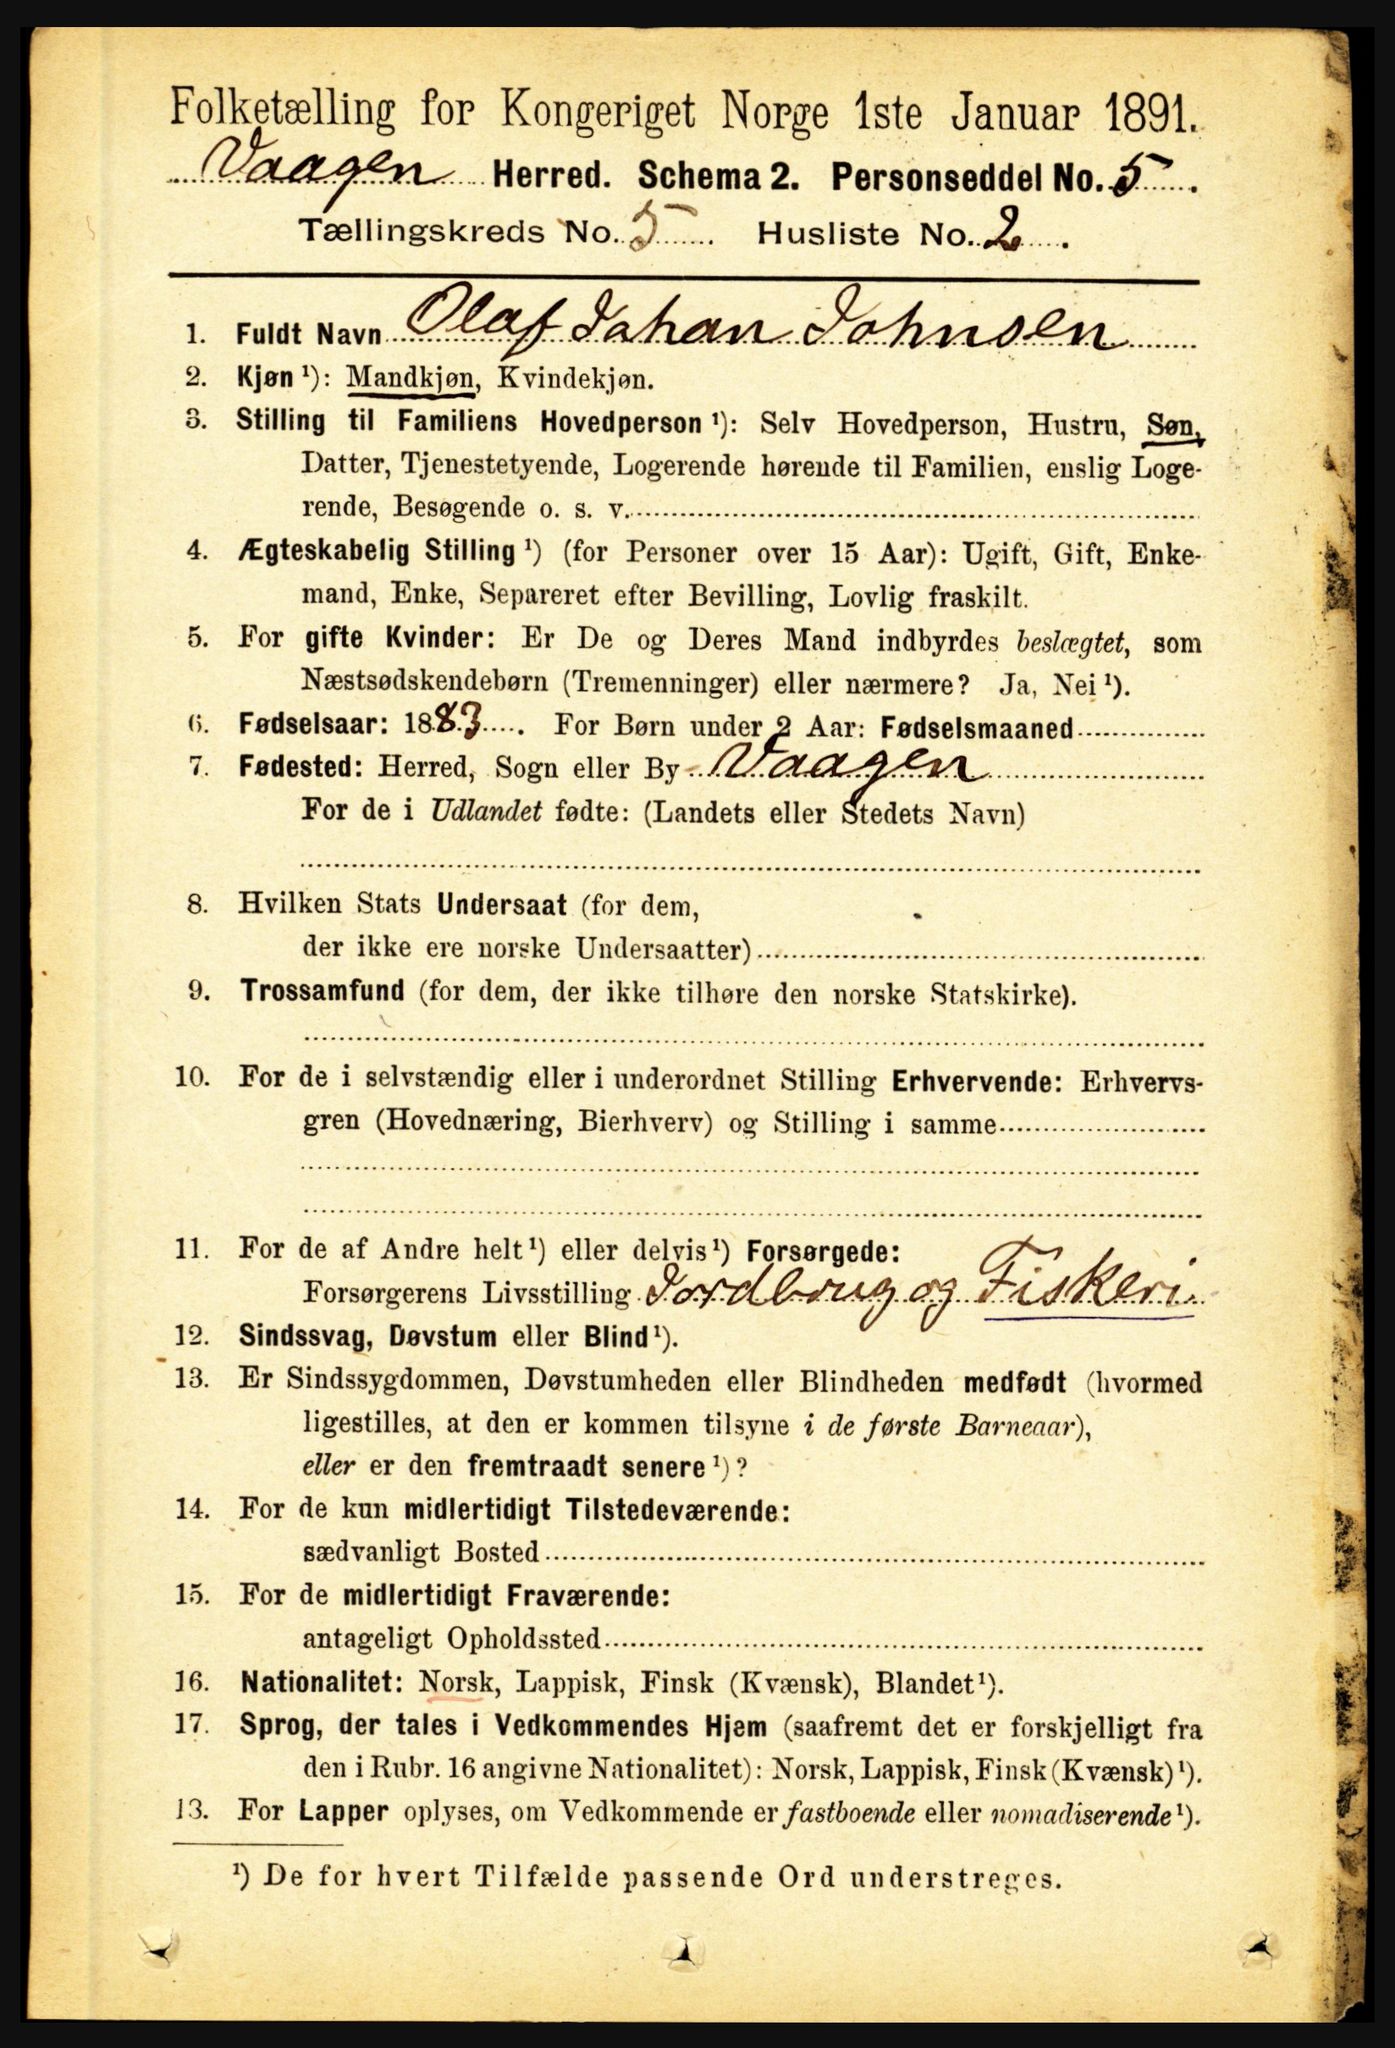 Folketælling for Kongeriget Norge 1ste Januar 1891.
Vaagen Herred. Schema 2. Personseddel No. 5.
Tællingskreds No. 5. Husliste No. 2.
1. Fuldt Navn Olaf Johan Johnsen
2. Kjøn¹): Mandkjøn, Kvindekjøn.
3. Stilling til Familiens Hovedperson¹): Selv Hovedperson, Hustru, Søn,
Datter, Tjenestetyende, Logerende hørende til Familien, enslig Loge-
rende, Besøgende o. s. v.
4. Ægteskabelig Stilling¹) (for Personer over 15 Aar): Ugift, Gift, Enke-
mand, Enke, Separeret efter Bevilling, Lovlig fraskilt.
5. For gifte Kvinder: Er De og Deres Mand indbyrdes beslægtet, som
Næstsødskendebørn (Tremenninger) eller nærmere? Ja, Nei¹).
6. Fødselsaar: 1883. For Børn under 2 Aar: Fødselsmaaned
7. Fødested: Herred, Sogn eller By Vaagen
For de i Udlandet fødte: (Landets eller Stedets Navn)
8. Hvilken Stats Undersaat (for dem,
der ikke ere norske Undersaatter)
9. Trossamfund (for dem, der ikke tilhøre den norske Statskirke).
10. For de i selvstændig eller i underordnet Stilling Erhvervende: Erhvervs-
gren (Hovednæring, Bierhverv) og Stilling i samme
11. For de af Andre helt¹) eller delvis¹) Forsørgede:
Forsørgerens Livsstilling Jordbrug og Fiskeri
12. Sindssvag, Døvstum eller Blind¹).
13. Er Sindssygdommen, Døvstumheden eller Blindheden medfødt (hvormed
ligestilles, at den er kommen tilsyne i de første Barneaar),
eller er den fremtraadt senere¹)?
14. For de kun midlertidigt Tilstedeværende:
sædvanligt Bosted
15. For de midlertidigt Fraværende:
antageligt Opholdssted
16. Nationalitet: Norsk, Lappisk, Finsk (Kvænsk), Blandet¹).
17. Sprog, der tales i Vedkommendes Hjem (saafremt det er forskjelligt fra
den i Rubr. 16 angivne Nationalitet): Norsk, Lappisk, Finsk (Kvænsk)¹).
13. For Lapper oplyses, om Vedkommende er fastboende eller nomadiserende¹).
¹) De for hvert Tilfælde passende Ord understreges.